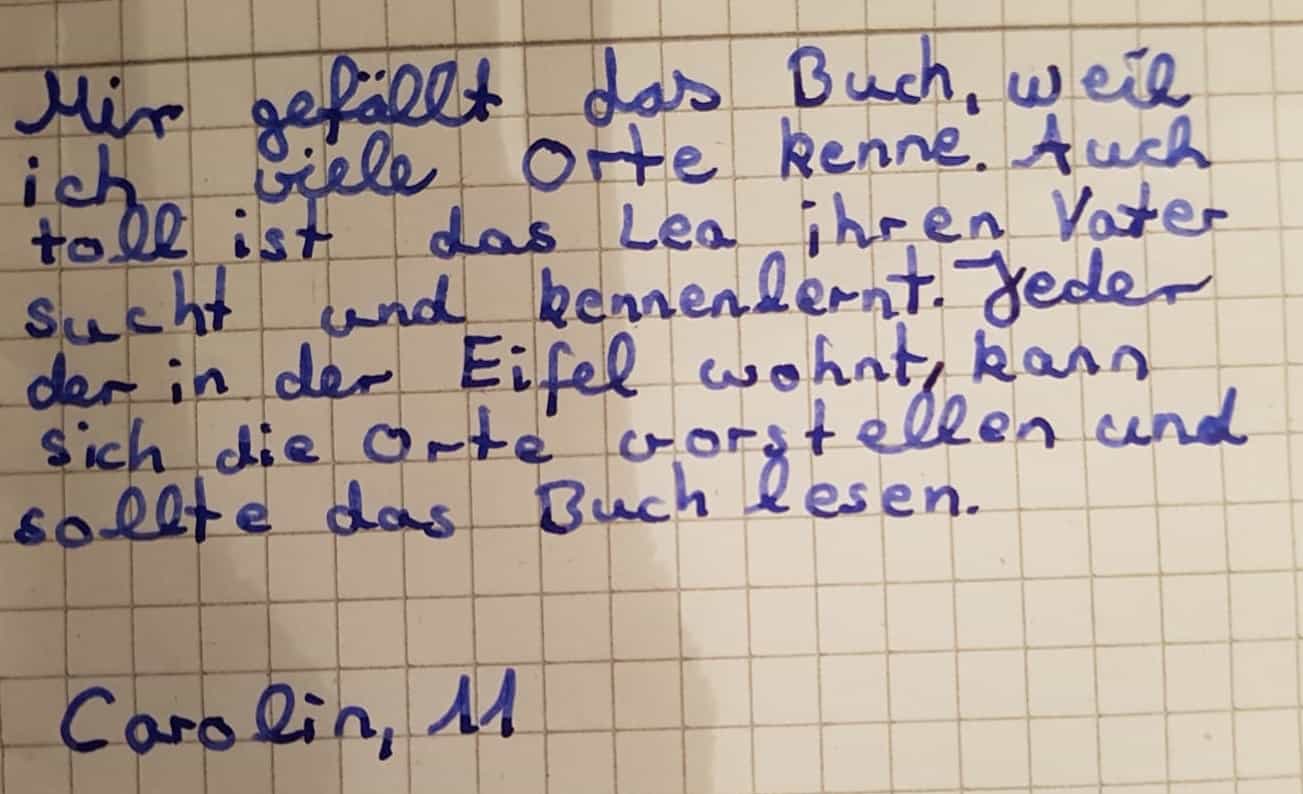 Mir gefällt das Buch, weil
ich viele Orte kenne. Auch
toll ist das Lea ihren Vater
sucht und kennenlernt. Jeder
der in der Eifel wohnt, kann
sich die Orte vorstellen und
sollte das Buch lesen.
Carolin, 11